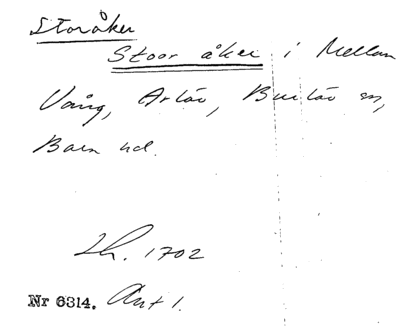 Storåker
Stoor åker i Mellan
Vång, Artlöv, Burlöv sn,
Bara hd.
Lh. 1702
Nr 6314. Ant 1.